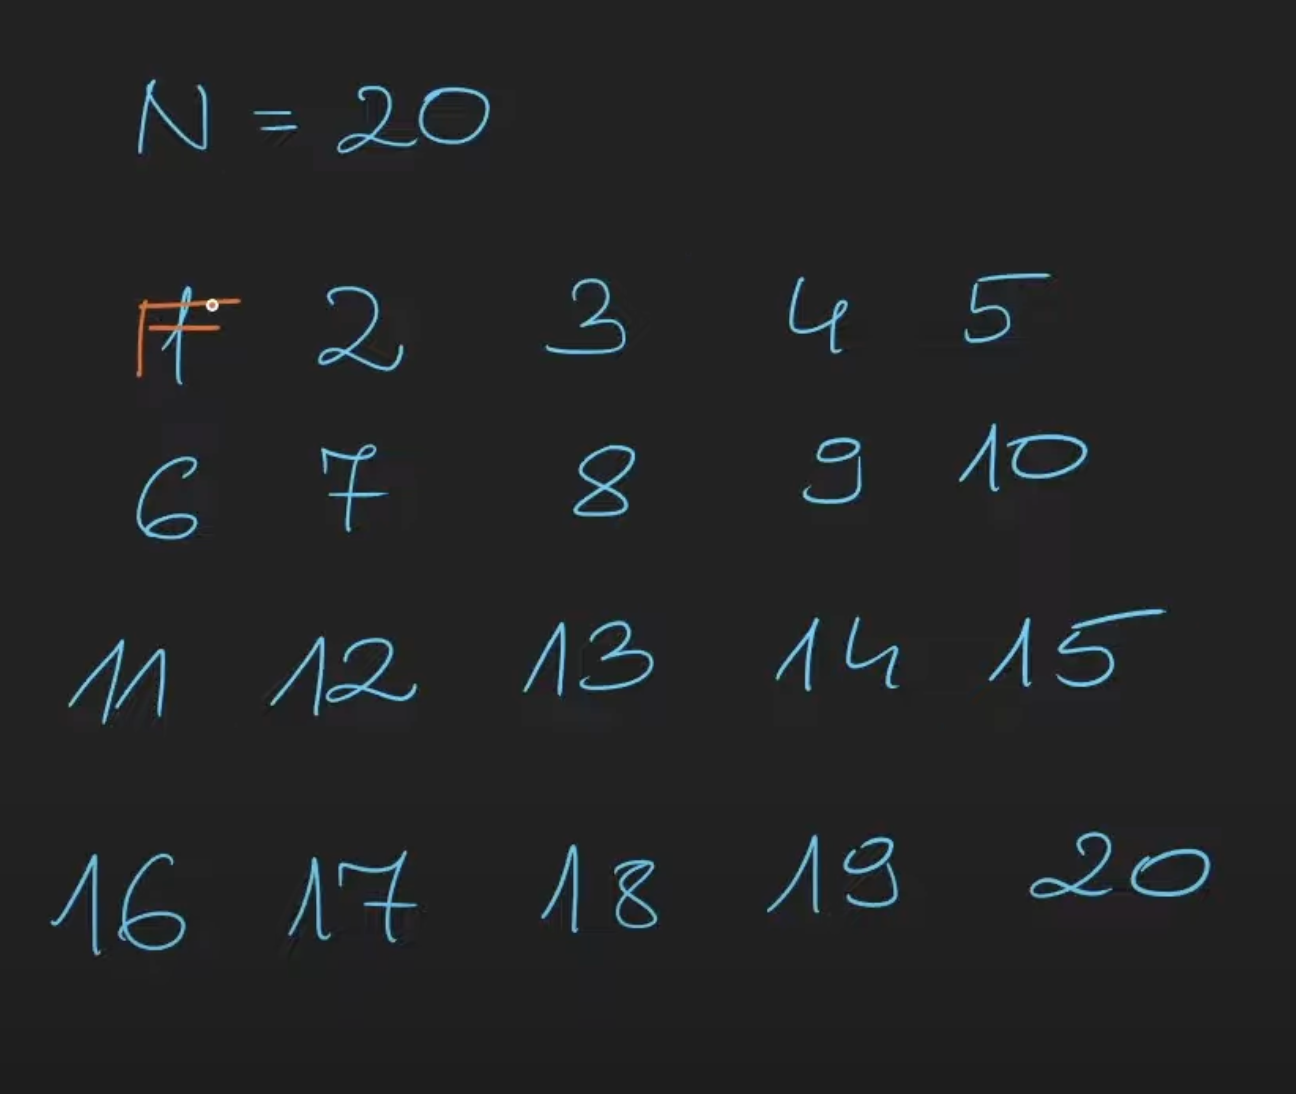 N = 20
1 2 3 4 5
6 7 8 9 10
11 12 13 14 15
16 17 18 19 20